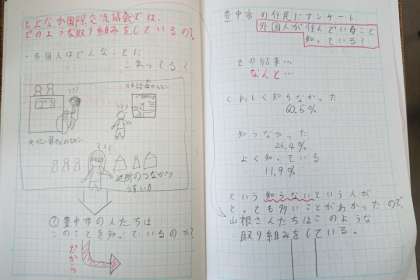 とよなか国際交流協会では、
どのような取り組みをしているの?
・外国人はどんなことに
こまってる?
近所のつながり
うすい
①豊中市の人たちは
このことを知っているのか?
だから
豊中市の住民にアンケート
外国人が住んでいること
知っている?
その結果…
なんと…
くわしく知らなかった
60.5%
知らなかった
26.4%
よく知っている
11.9%
という知らないという人が
とっても多いことがわかったので、
山根さんたちはこのような
取り組みをしている。